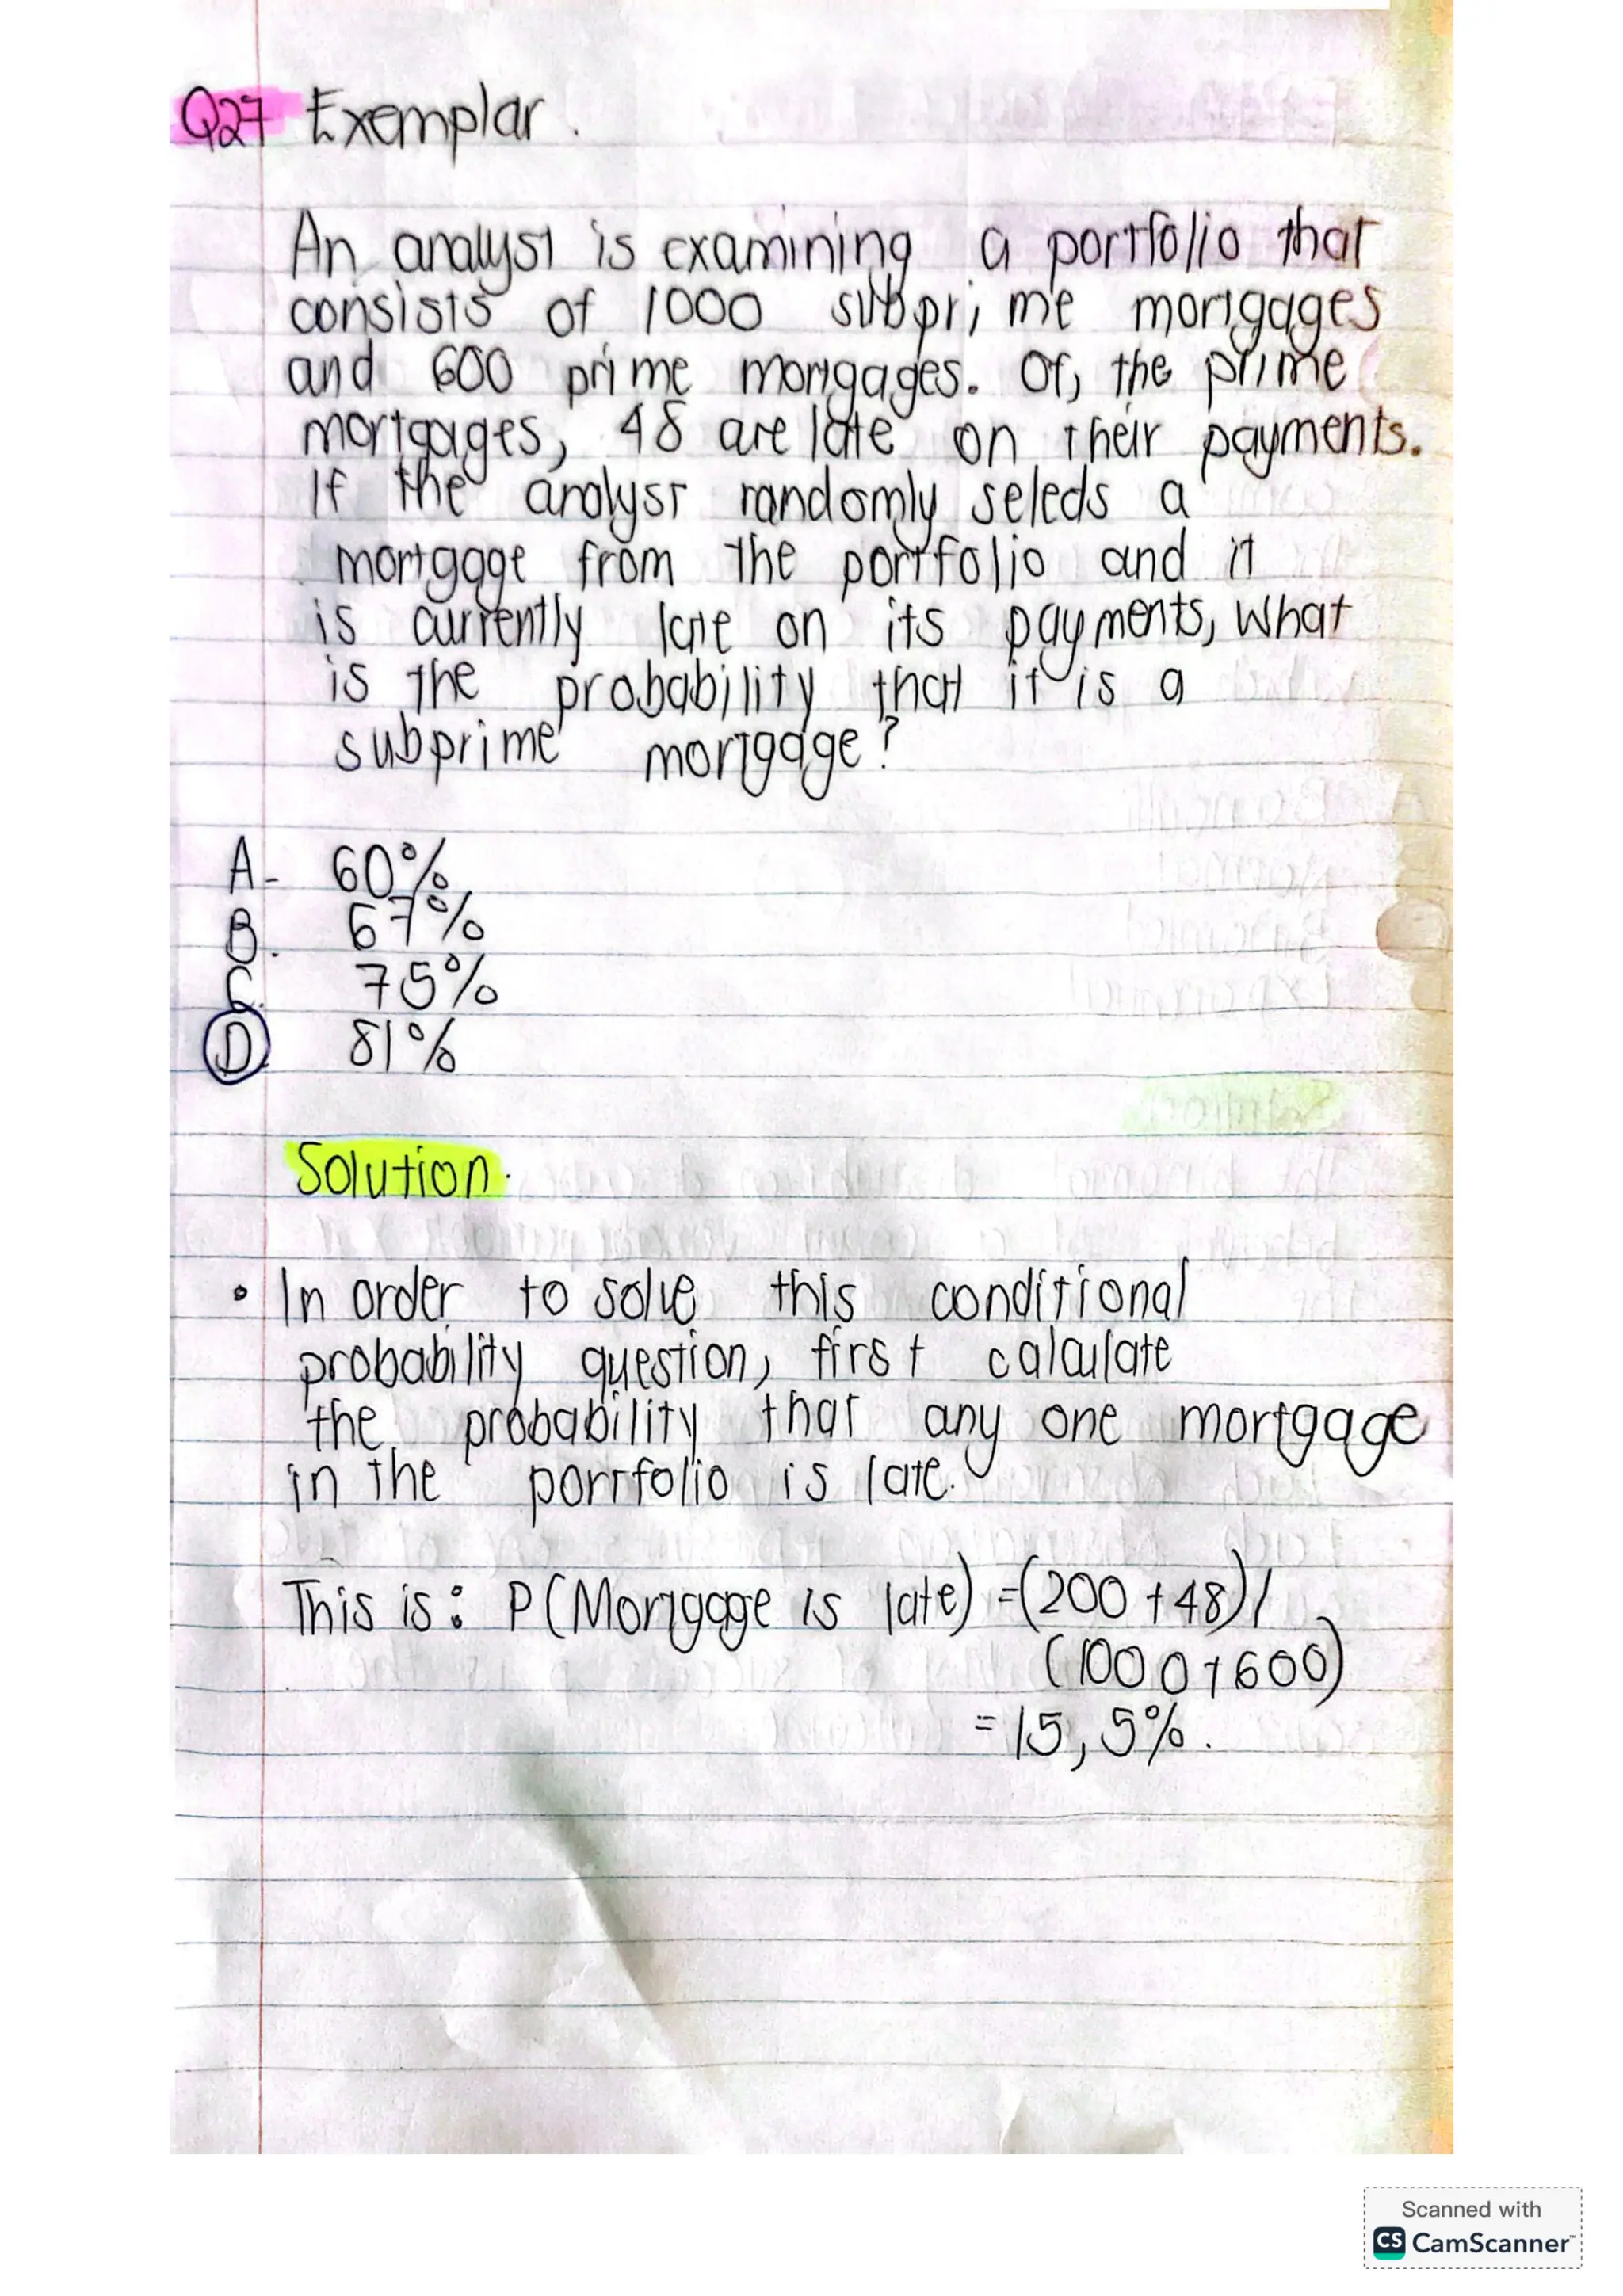 Q27 Exemplar.
An analyst is examining a portfolio that
consists of 1000 subprime mortgages
and 600 prime mortgages. Of, the prime
mortgages, 48 are late on their payments.
If the analyst randomly selects a
mortgage from the portfolio and it
is currently late on its payments, What
is the probability that it is a
subprime mortgage?
A- 60%
B. 67%
C. 75%
D. 81%
Solution.
• In order to solve this conditional
probability question, first calculate
the probability that any one mortgage
in the portfolio is late.
This is: P(Mortgage is late) =(200 + 48)/
(1000+600)
= 15,5%.
Scanned with
CS CamScanner™